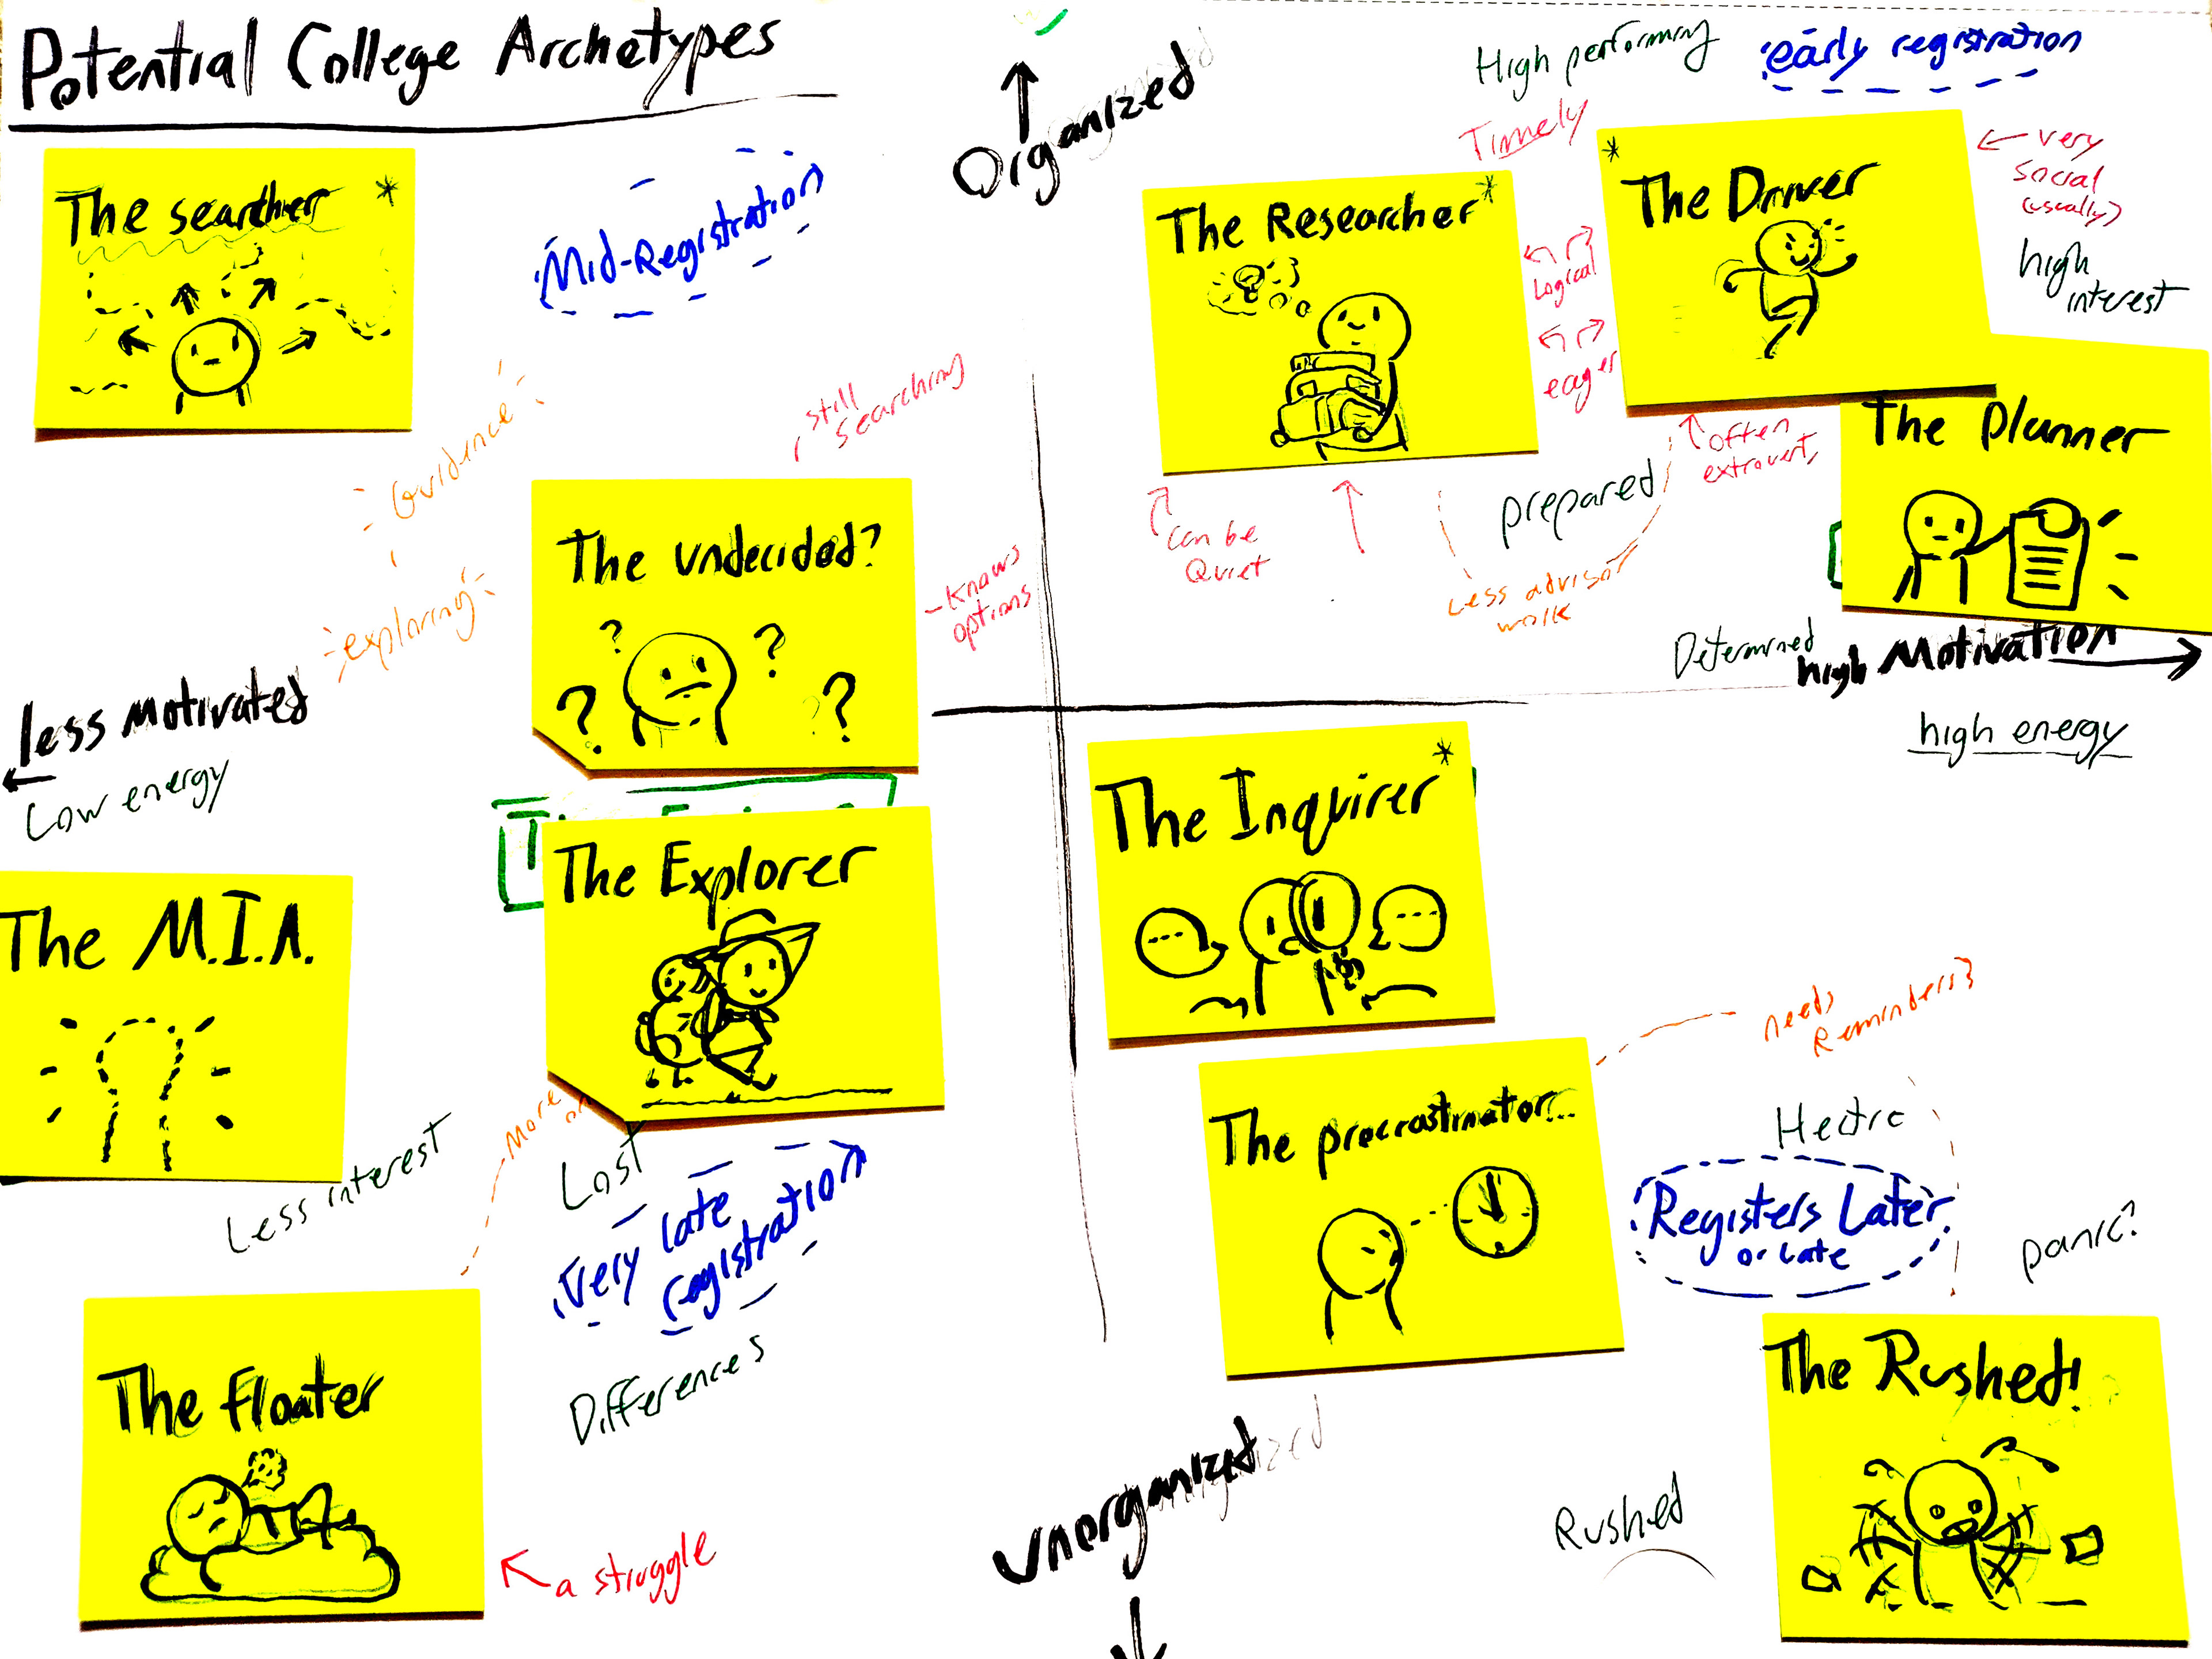 Potential College Archetypes
Organized
High performing
early registration
Timely
The searcher *
Mid-Registration
The Researcher *
* The Driver
very
social
(usually)
high
interest
Logical
eager
The Planner
often
extrovert,
prepared
can be
Quiet
Less advisor
work
Guidance
exploring
still
searching
The undecided?
? ? ? ?
-Knows
options
Determined
high Motivation
high energy
less motivated
Low energy
The Explorer
The Inquirer *
The M.I.A.
More
Less interest
Lost
Very late
registration
Differences
needs
Reminders?
Hectic
The procrastinator...
Registers Later
or Late
panic?
The Floater
a struggle
unorganized
Rushed
The Rushed!